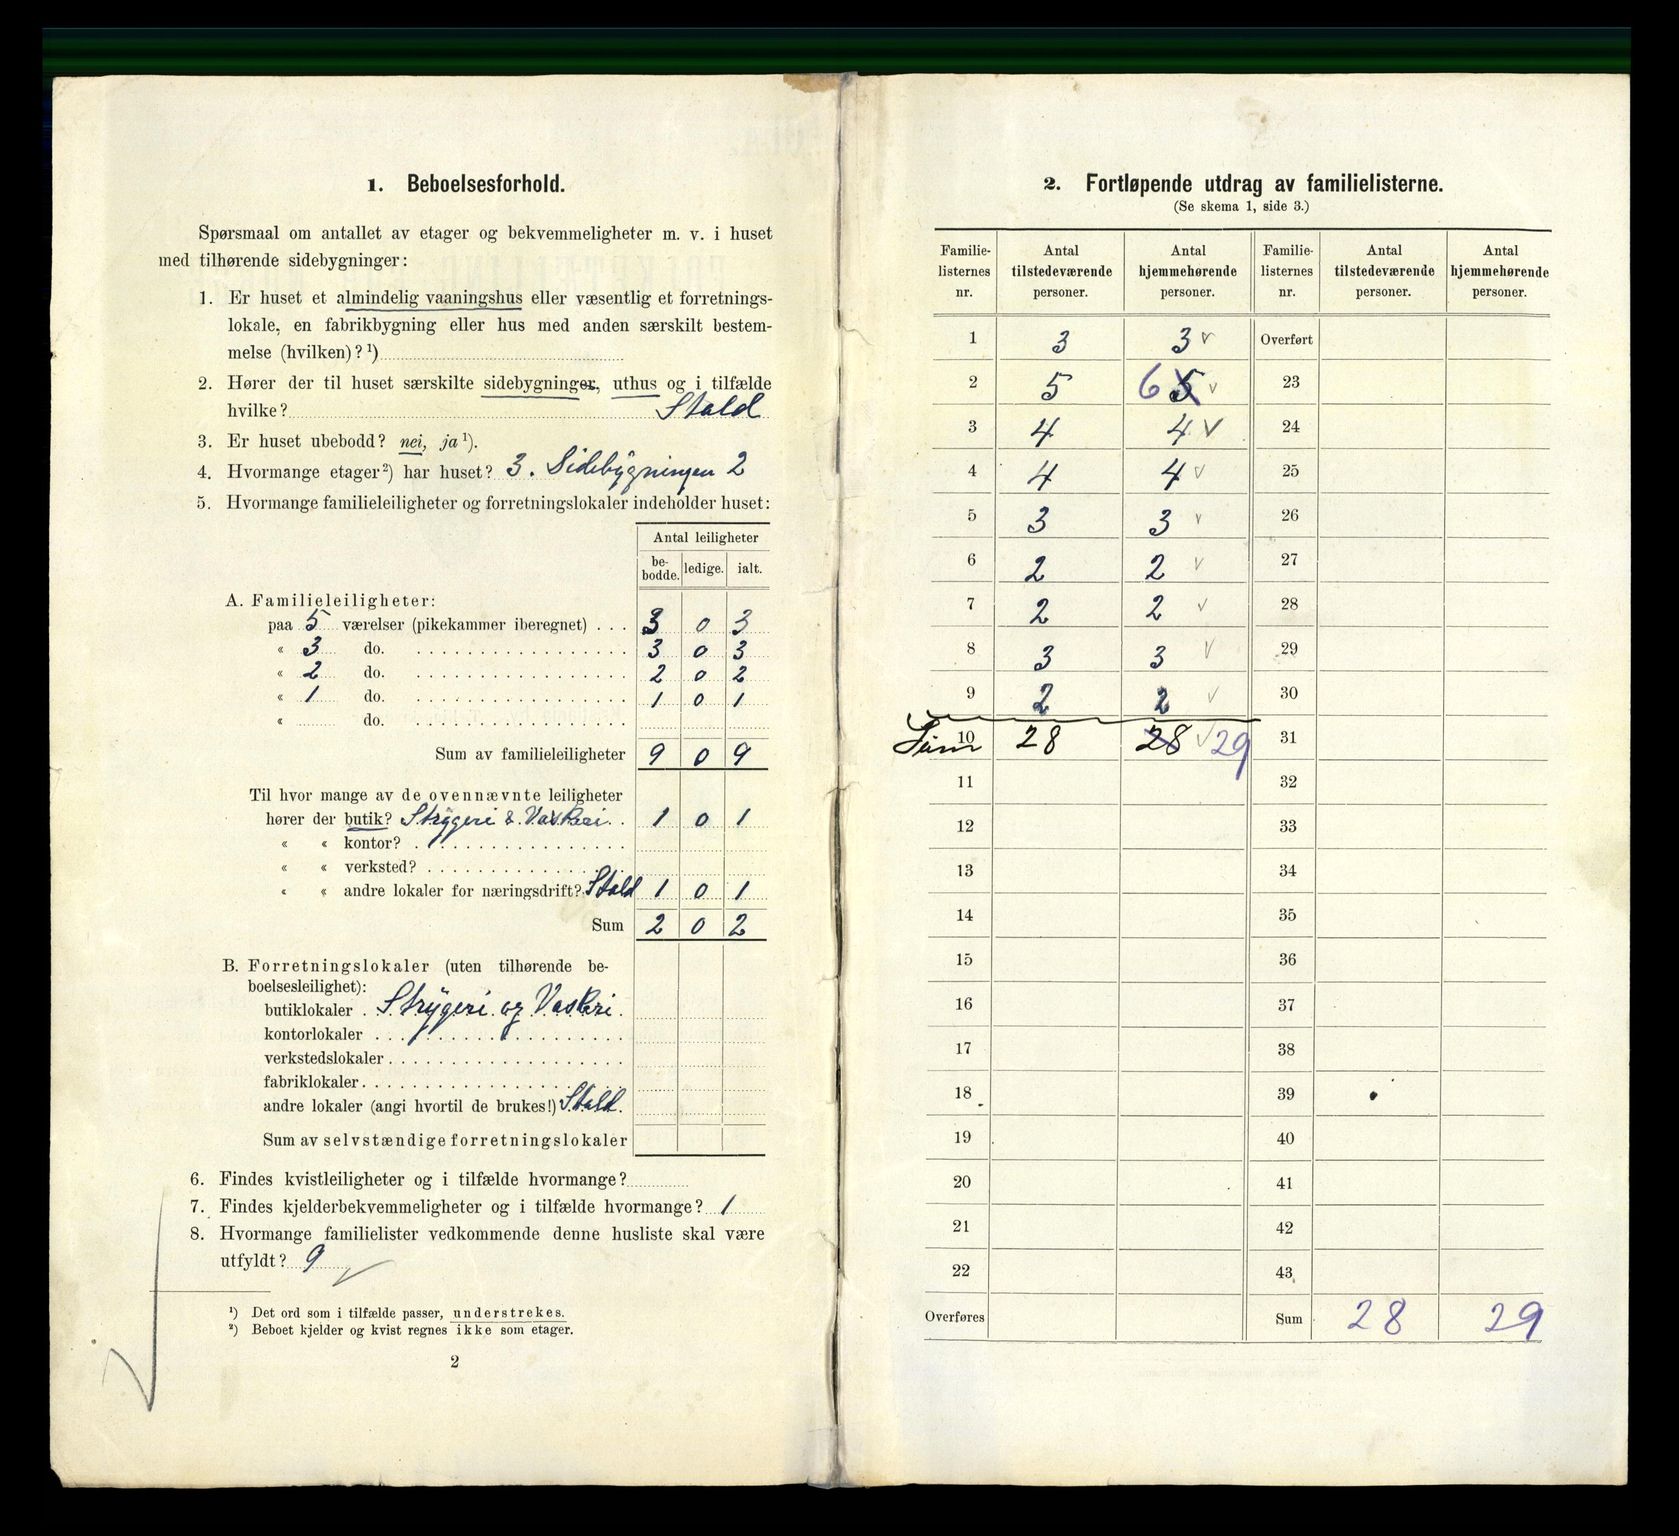 1. Beboelsesforhold.
Spørsmaal om antallet av etager og bekvemmeligheter m. v. i huset
med tilhørende sidebygninger:
1. Er huset et almindelig vaaningshus eller væsentlig et forretnings-
lokale, en fabrikbygning eller hus med anden særskilt bestem-
melse (hvilken)? ¹)
2. Hører der til huset særskilte sidebygninger, uthus og i tilfælde
hvilke? Stald
3. Er huset ubebodd? nei, ja ¹).
4. Hvormange etager ²) har huset? 3. Sidebygningen 2
5. Hvormange familieleiligheter og forretningslokaler indeholder huset:
Antal leiligheter
be-bodde. ledige. ialt.
A. Familieleiligheter:
paa 5 værelser (pikekammer iberegnet) . . . 3 0 3
« 3 do. 3 0 3
« 2 do. 2 0 2
« 1 do. 1 0 1
« do.
Sum av familieleiligheter 9 0 9
Til hvor mange av de ovennævnte leiligheter
hører der butik? Strygeri & Vaskeri 1 0 1
« « kontor?
« « verksted?
« « andre lokaler for næringsdrift? Stald 1 0 1
Sum 2 0 2
B. Forretningslokaler (uten tilhørende be-
boelsesleilighet):
butiklokaler . Strygeri og Vaskeri
kontorlokaler
verkstedslokaler
fabriklokaler
andre lokaler (angi hvortil de brukes!) Stald.
Sum av selvstændige forretningslokaler
6. Findes kvistleiligheter og i tilfælde hvormange?
7. Findes kjelderbekvemmeligheter og i tilfælde hvormange? 1
8. Hvormange familielister vedkommende denne husliste skal være
utfyldt? 9
¹) Det ord som i tilfælde passer, understrekes.
²) Beboet kjelder og kvist regnes ikke som etager.
2
2. Fortløpende utdrag av familielisterne.
(Se skema 1, side 3.)
Familie-listernes nr. Antal tilstedeværende personer. Antal hjemmehørende personer. Familie-listernes nr. Antal tilstedeværende personer. Antal hjemmehørende personer.
1 3 3 Overført
2 5 6 5 23
3 4 4 24
4 4 4 25
5 3 3 26
6 2 2 27
7 2 2 28
8 3 3 29
9 2 2 30
Sum 10 28 28 29 31
11 32
12 33
13 34
14 35
15 36
16 37
17 38
18 39
19 40
20 41
21 42
22 43
Overføres Sum 28 29